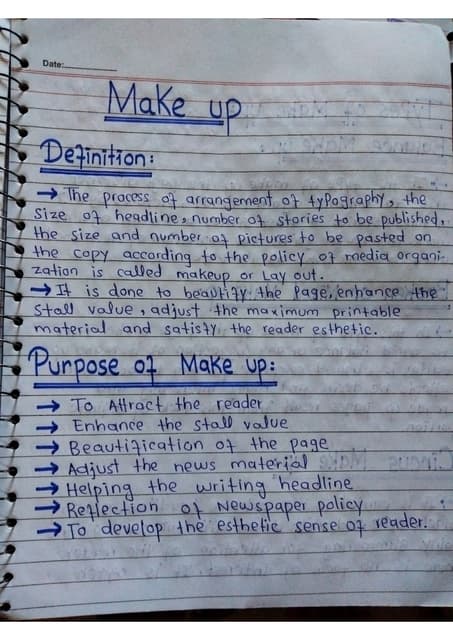 Date:
Make up
Definition:
→ The process of arrangement of typography, the
size of headline, number of stories to be published,
the size and number of pictures to be pasted on
the copy according to the policy of media organi-
zation is called makeup or Lay out.
→ It is done to beautify the Page, enhance the
stall value, adjust the maximum printable
material and satisfy the reader esthetic.
Purpose of Make up:
→ To Attract the reader
→ Enhance the stall value
→ Beautification of the page
→ Adjust the news material
→ Helping the writing headline
→ Reflection of Newspaper policy
→ To develop the esthetic sense of reader.